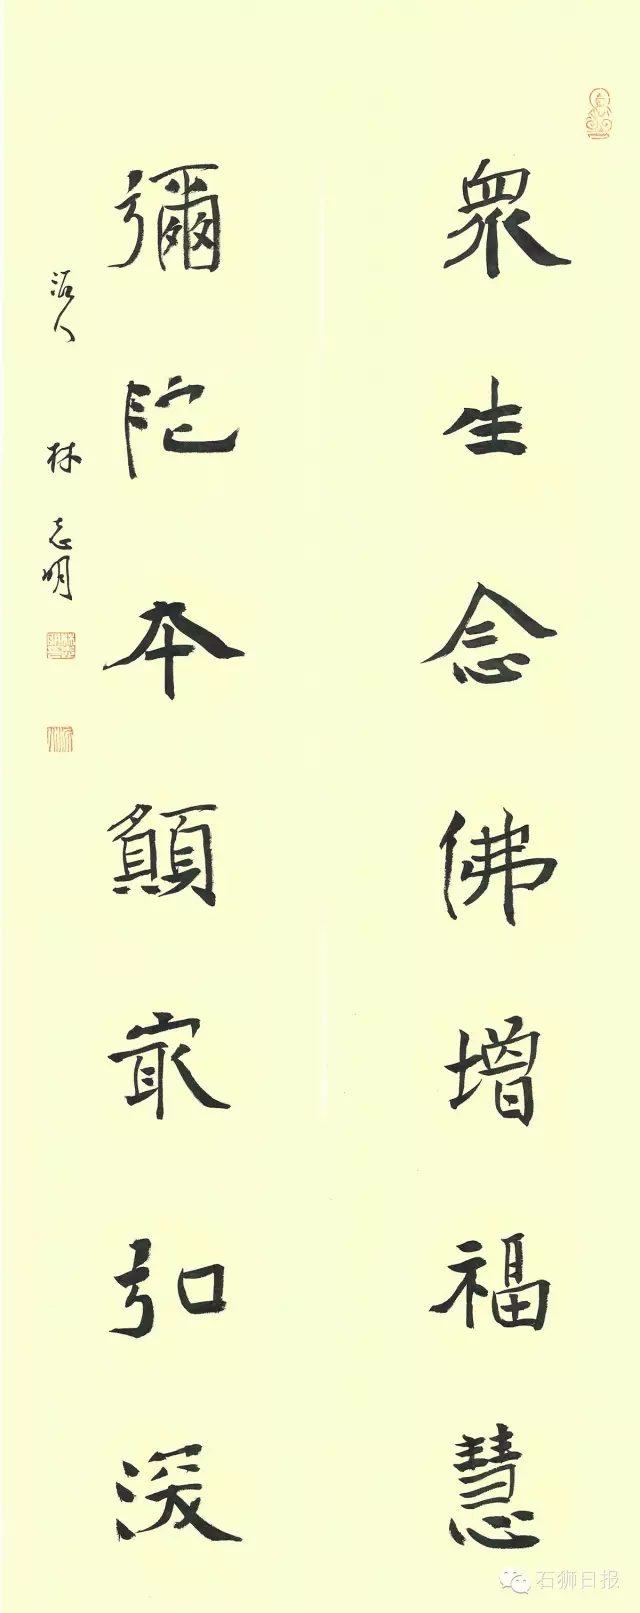 眾生念佛增福慧
彌陀本願最弘深
人 林志明
石狮日报